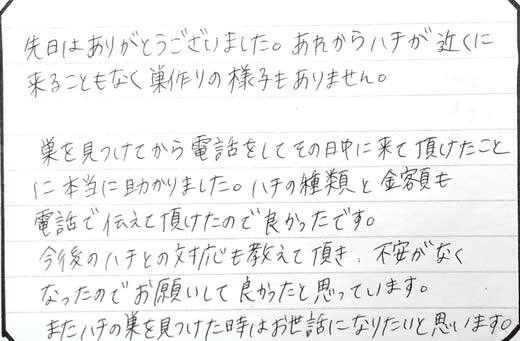 先日はありがとうございました。あれからハチが近くに
来ることもなく巣作りの様子もありません。
巣を見つけてから電話をしてその日中に来て頂けたこと
に本当に助かりました。ハチの種類と金額も
電話で伝えて頂けたので良かったです。
今後のハチとの対応も教えて頂き、不安がなく
なったのでお願いして良かったと思っています。
またハチの巣を見つけた時はお世話になりたいと思います。